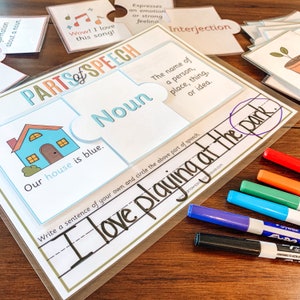 Wow! I love
this song!
Expresses
an emotion
or strong
feeling.
Interjection
PARTS of SPEECH
Noun
The name of
a person,
place, thing,
or idea.
Our house is blue.
Write a sentence of your own and circle the above part of speech.
I love playing at the park.